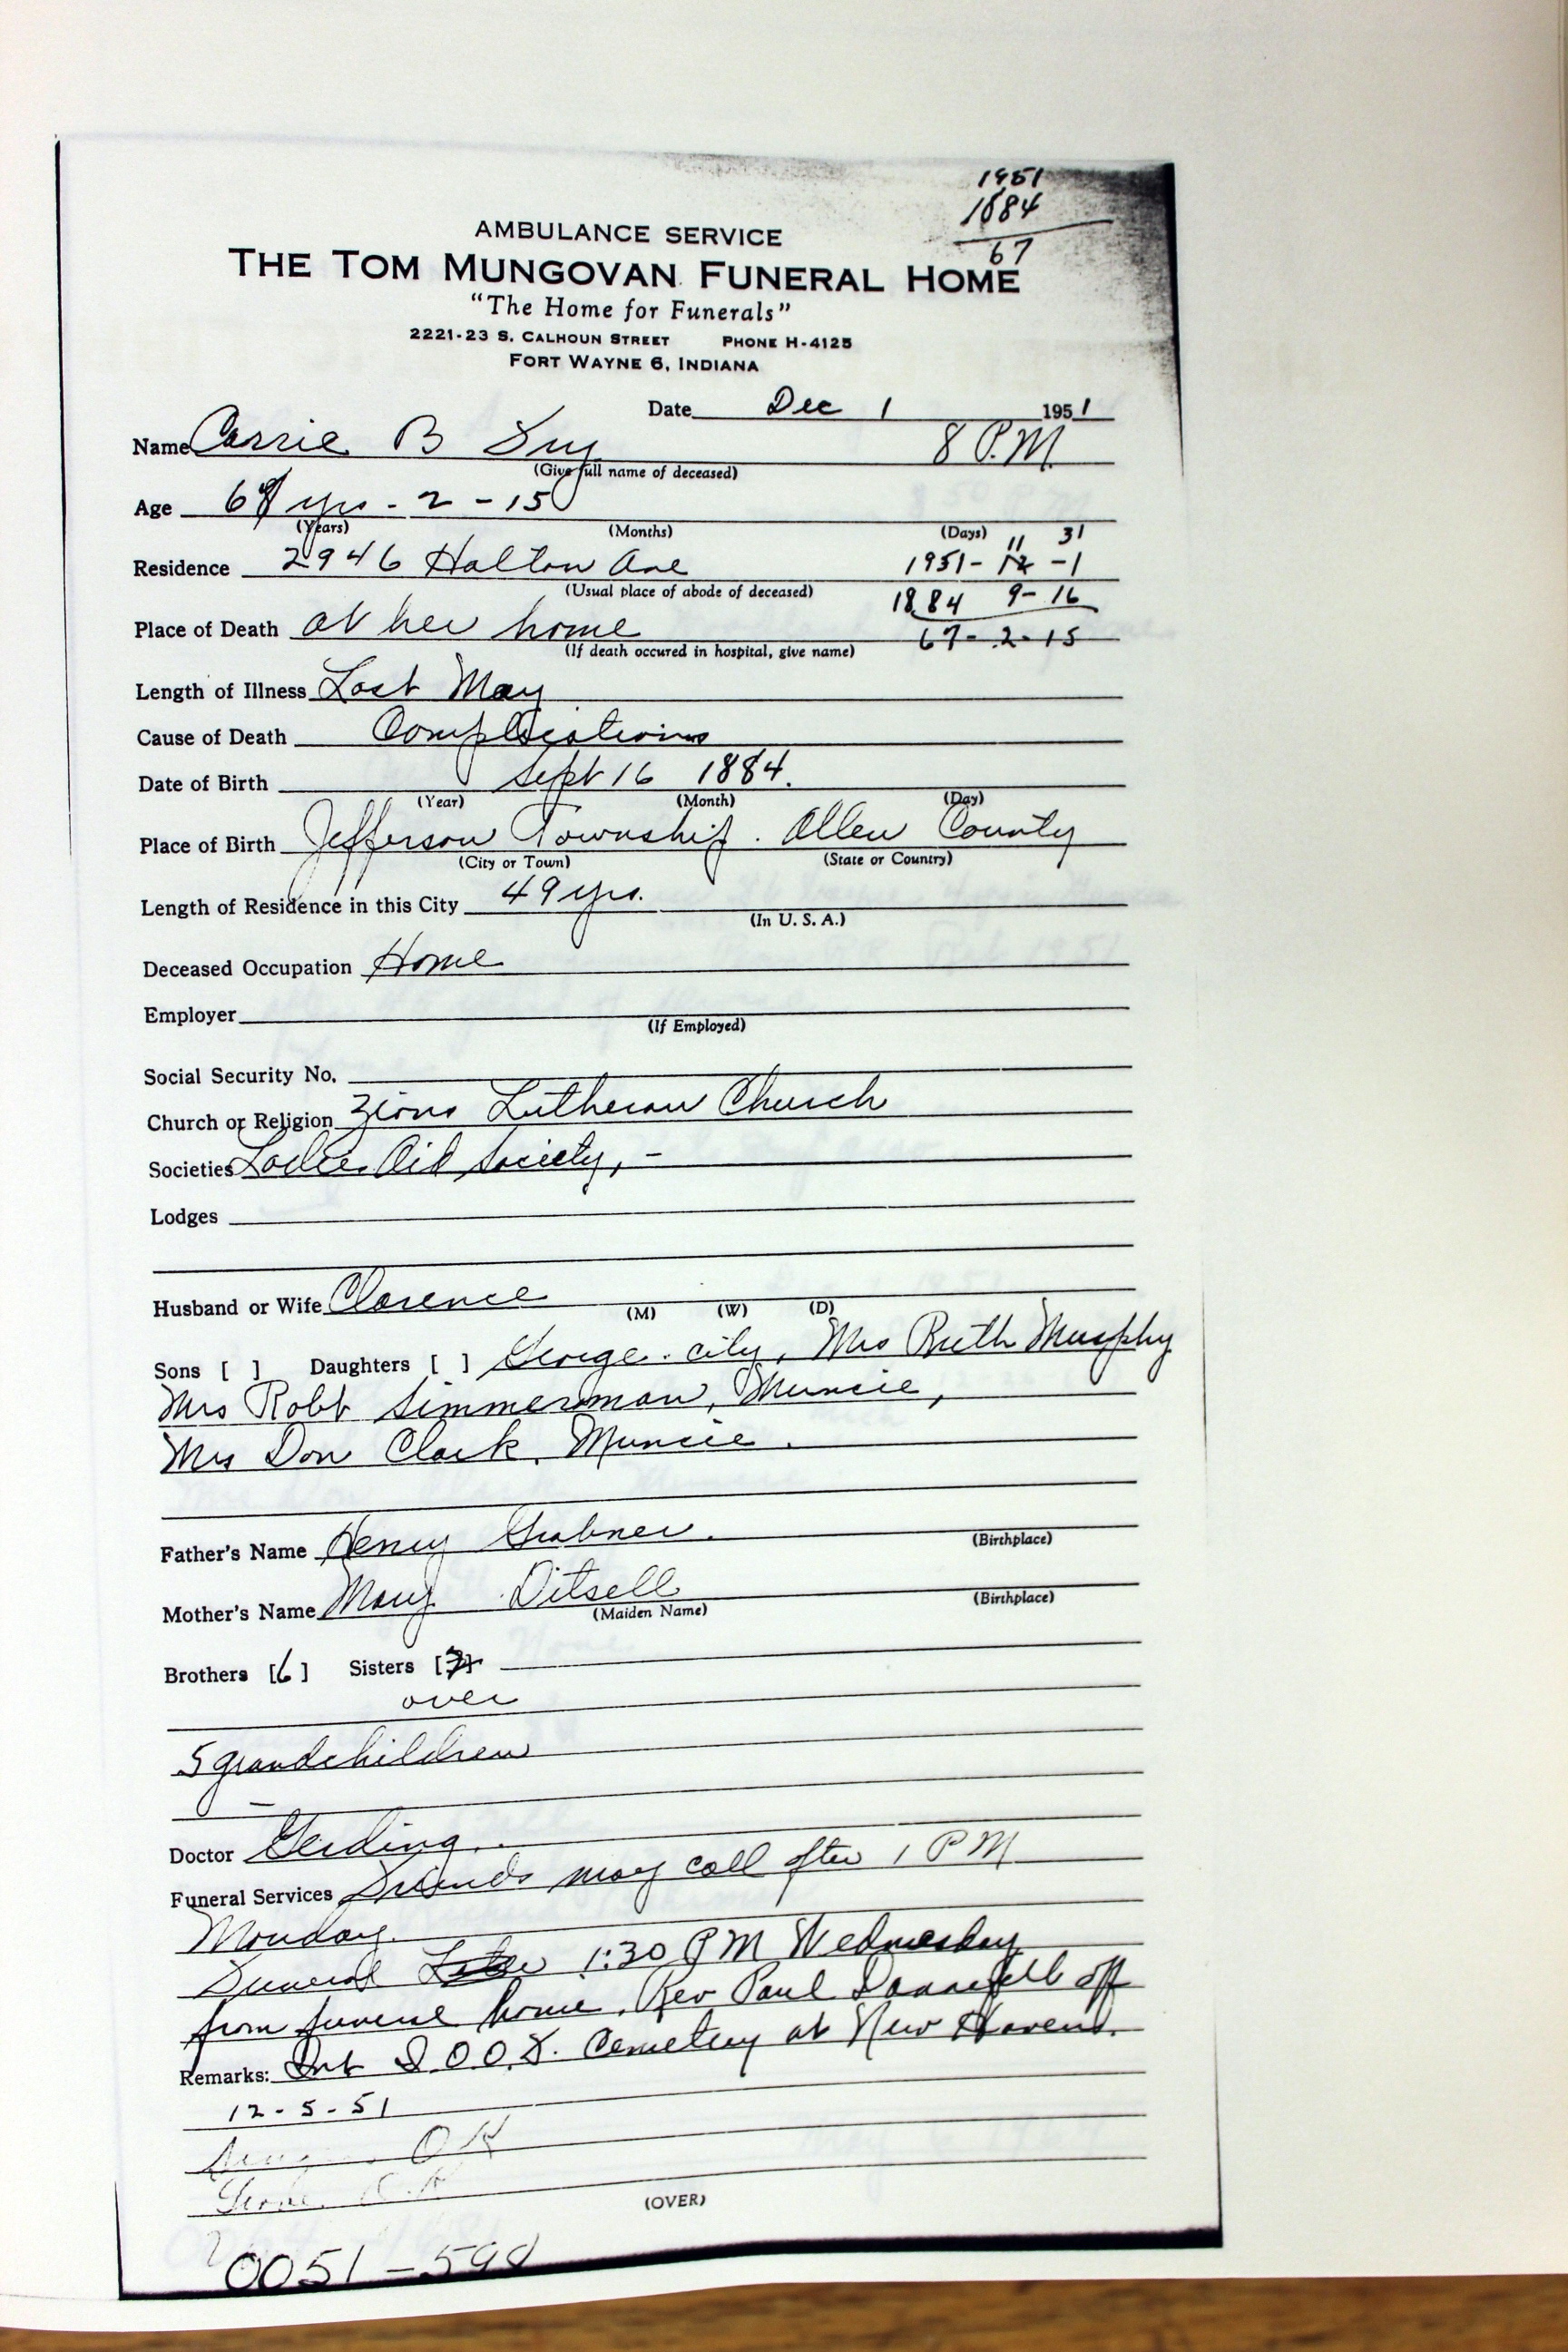 1951
1884
67
AMBULANCE SERVICE
THE TOM MUNGOVAN FUNERAL HOME
"The Home for Funerals"
2221-23 S. CALHOUN STREET PHONE H-4125
FORT WAYNE 6, INDIANA
Date Dec 1 1951
Name Carrie B 8 P.M.
(Give full name of deceased)
Age yrs - 2 - 15
(Years) (Months) (Days)
11 31
Residence 2946 Halton Ave 1951- 12 -1
(Usual place of abode of deceased) 1884 9-16
Place of Death at her home 67-2-15
(If death occured in hospital, give name)
Length of Illness Last May
Cause of Death Complications
Date of Birth Sept 16 1884.
(Year) (Month) (Day)
Place of Birth Jefferson Township. Allen County
(City or Town) (State or Country)
Length of Residence in this City 49 yrs.
(In U. S. A.)
Deceased Occupation Home
Employer
(If Employed)
Social Security No.
Church or Religion Zions Lutheran Church
Societies Ladies Aid Society, -
Lodges
Husband or Wife Clarence
(M) (W) (D)
Sons [ ] Daughters [ ] George. city, Mrs Ruth Murphy
Mrs Robt Simmerman, Muncie,
Mrs Don Clark, Muncie.
Father's Name Henry
(Birthplace)
Mother's Name Mary Ditsell
(Maiden Name) (Birthplace)
Brothers [6] Sisters [ ]
over
5 grandchildren
Doctor Gerding.
Funeral Services Friends may call after 1 PM
Monday.
Funeral 1:30 PM Wednesday
from funeral home, Rev Paul off
Remarks: Int I.O.O.F. Cemetery at New Haven.
12-5-51
OK
O.K
(OVER)
0051-598